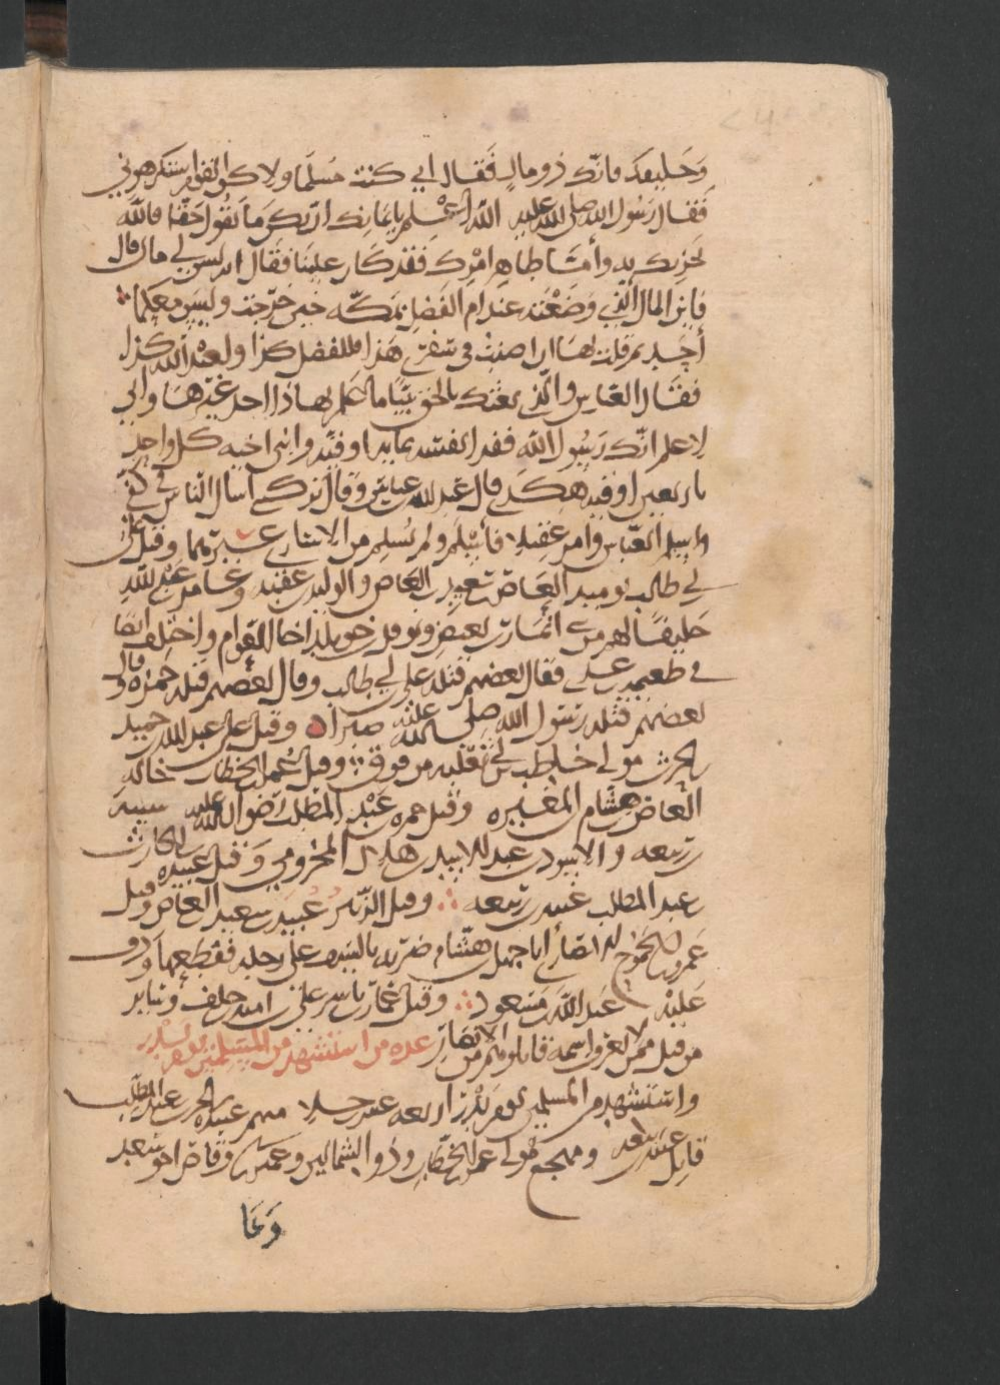 وحليفك فانك ذو مال فقال اني كنت مسلما ولاكن القوم استكرهوني
فقال رسول الله صلى الله عليه الله اعلم بايمانك ان يكن ما تقول حقا فالله
يجزيك به وأما ظاهر امرك فقد كان علينا فقال انه ليس لي مال قال
فاين المال الذي وضعته عند ام الفضل بمكة حين خرجت وليس معكما
أحد ثم قلت لها ان اصبت في سفري هذا فللفضل كذا ولعبد الله كذا
فقال العباس والذي بعثك بالحق نبيا ما علم بهاذا احد غيرها واني
لاعلم انك رسول الله ففدا نفسه بماية اوقية وابني اخيه كل واحد
باربعين اوقية قال عبد الله عباس وقال تركتني أسأل الناس في كفي
واسلم العباس وامر عقيلا فأسلم ولم يسلم من الاسارى غيرهما وقتل علي
بي طالب يوميد العاص سعيد العاص والوليد عقبه وعامر عبد الله
حليفا لهم من انمار ونوفل خويلد اخا العوام واختلف
في طعيمة عدي فقال بعضهم قتله علي بي طالب وقال بعضهم قتله حمزة وقال
بعضهم قتله رسول الله صلى الله عليه صبرا وقتل علي عبد الله حميد
مولى خاطب وقتل عمر الخطاب خاله
العاص هشام المغيره وقتل حمزه عبد المطلب رضوان الله عليه شيبة
ربيعه والاسود عبد الاسد هلال المخزومي وقتل عبيده الحارث
عبد المطلب عتبه ربيعه وقتل الزبير عبيد سعيد العاص وقتل
عمرو الجموح الانصاري ابا جهل هشام ضربه بالسيف على رجله فقطعها وذفف
عليه عبد الله مسعود وقتل عمار ياسر علي اميه خلف وساير
من قتل ممن لا نعرف اسمه قاتلوهم من الانصار عده من استشهد من المسلمين يوم بدر
واستشهد من المسلمين يوم بدر اربعه عشر رجلا منهم عبيده الحرث عبد المطلب
قاتل عتبة ومهجع مولى عمر الخطاب وذو الشمالين وعمير وقاص اخو سعد
وعا